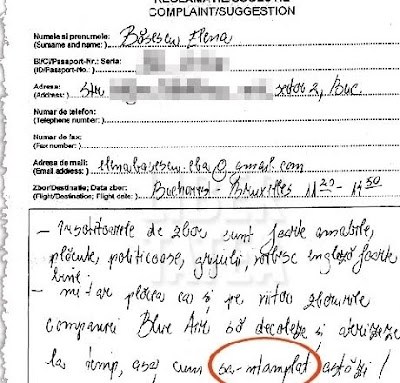 RECLAMATIE/SUGESTIE
COMPLAINT/SUGGESTION
Numele si prenumele:
(Surname and name: ) Băsescu Elena
BI/CI/Passaport-Nr.: Seria:
(ID/Passport-No. )
Adresa:
(Address: ) Str sector 2, Buc.
Numar de telefon:
(Telephone number: )
Numar de fax:
(Fax number: )
Adresa de mail:
(Email address: ) elenabasescu.eba@gmail.com
Zbor/Destinatie; Data zbor:
(Flight/Destination; Flight date: ) București - Bruxelles 11 20 - 13 50
- Însoțitoarele de zbor sunt foarte amabile,
plăcute, politicoase, grijulii, vorbesc engleză foarte
bine.
- mi-ar plăcea ca și pe viitor zborurile
companiei Blue Air să decoleze și aterizeze
la timp, așa cum sa-ntamplat astăzi!